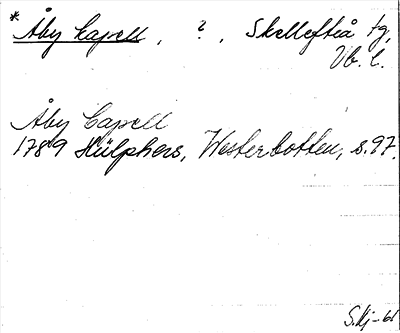 * Åby kapell, ?, Skellefteå tg,
Vb. l.
Åby Capell
1789 Hülphers, Westerbotten, s. 97.
S.Kj-61